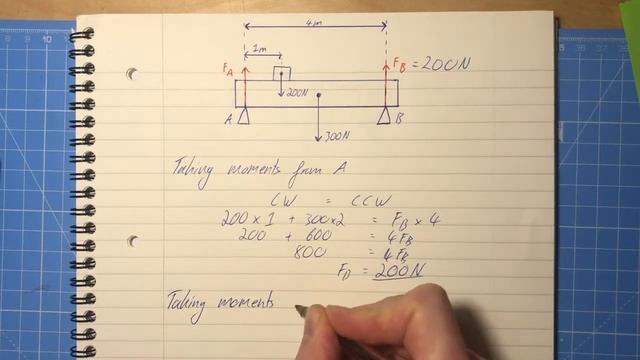 4m
1m
F_A
F_B = 200N
200N
A
B
300N
Taking moments from A
CW = CCW
200 × 1 + 300×2 = F_B × 4
200 + 600 = 4F_B
800 = 4F_B
F_B = 200N
Taking moments